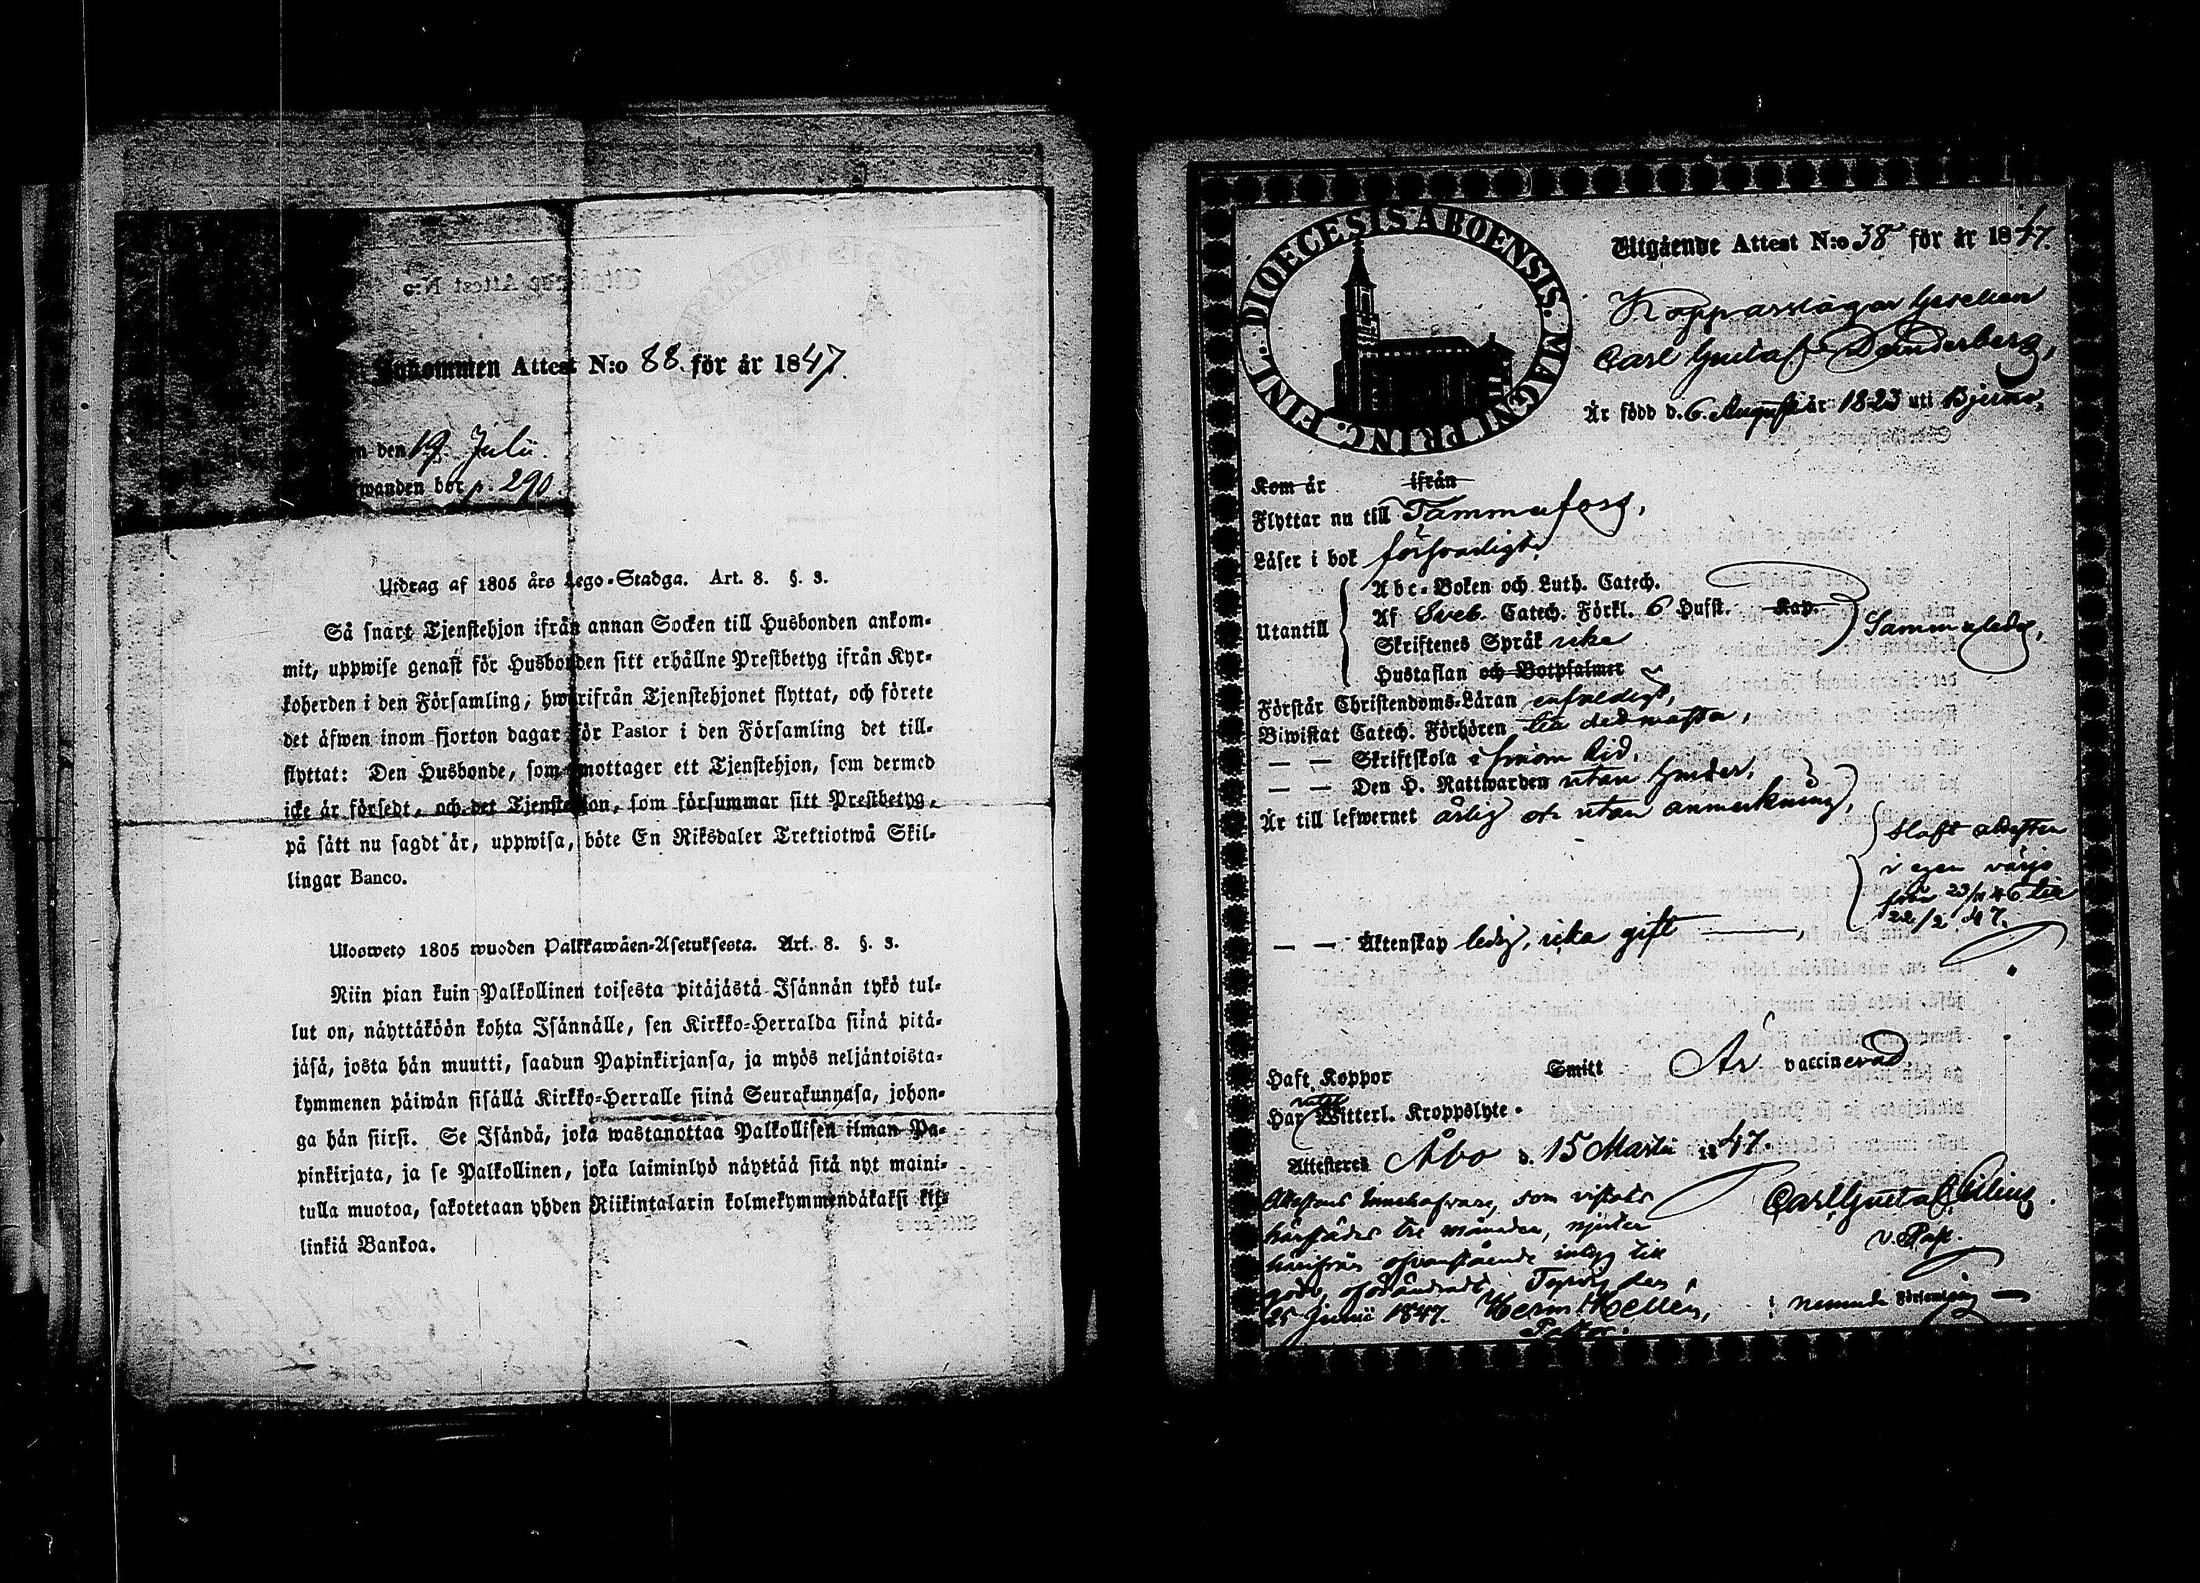 Inkommen Attest N:o 88. för år 1847.
n den 19. Julii.
wanden bok p. 290
Utdrag af 1805 års Lego-Stadga. Art. 8. §. 3.
Så snart Tjenstehjon ifrån annan Socken till Husbonden ankom-
mit, uppwise genast för Husbonden sitt erhållne Prestbetyg ifrån Kyr-
koherden i den Församling, hwarifrån Tjenstehjonet flyttat, och förete
det äfwen inom fjorton dagar för Pastor i den Församling det till-
flyttat: Den Husbonde, som emottager ett Tjenstehjon, som dermed
icke är försedt, och det Tjenstehjon, som försummar sitt Prestbetyg,
på sätt nu sagdt är, uppwisa, böte En Riksdaler Trettiotwå Skil-
lingar Banco.
Ulosweto 1805 wuoden Palkkawäen-Asetuksesta. Art. 8. §. 3.
Niin pian kuin Palkollinen toisesta pitäjästä Isännän tykö tul-
lut on, näyttäköön kohta Isännälle, sen Kirkko-Herralda siinä pitä-
jäsä, josta hän muutti, saadun Papinkirjansa, ja myös neljäntoista-
kymmenen päiwän sisällä Kirkko-Herralle siinä Seurakunnasa, johon-
ga hän siirsi. Se Isändä, joka wastanottaa Palkollisen ilman Pa-
pinkirjata, ja se Palkollinen, joka laiminlyö näyttää sitä nyt maini-
tulla muotoa, sakotetaan yhden Riikintalarin kolmekymmendäkaksi kil-
linkiä Bankoa.
DIOECESIS ABOENSIS. MAGNI PRINC. FINL.
Utgående Attest N:o 38 för år 1847.
Kopparslagar Gesellen
Carl Gustaf Dunderberg,
Är född d. 6. Augusti år 1823 uti Bjerno,
Kom år ifrån
Flyttar nu till Tammerfors,
Läser i bok försvarligt,
Utantill
Abc-Boken och Luth. Catech.
Af Sveb. Catech. Förkl. 6 Hufst. Kap.
Skriftenes Språk icke
Hustaflan och Botpsalmer
Sammaledes,
Förstår Christendoms-Läran enfaldigt,
Biwistat Catech. Förhören till det mesta,
— — Skriftskola i sinom tid,
— — Den H. Nattwarden utan hinder,
Är till lefwernet ärlig och utan anmärkning,
Haft
i egen
från 23/11 46 till
22/2 47.
— — Äktenskap ledig, icke gift ———,
Haft Koppor Smitt Är vaccinerad
Har Witterl. Kroppslyte.
Attesteres Åbo d. 15 Martii 1847.
Attestens Innehafvare, som vistats
härstädes tre månader, njuter
härifrån ofvanstående intyg till
godo, oförändradt,
25 Junii 1847. Herm: Hellén,
Pastor.
Carl Gustaf
v. Past.
i nemnde Församling —